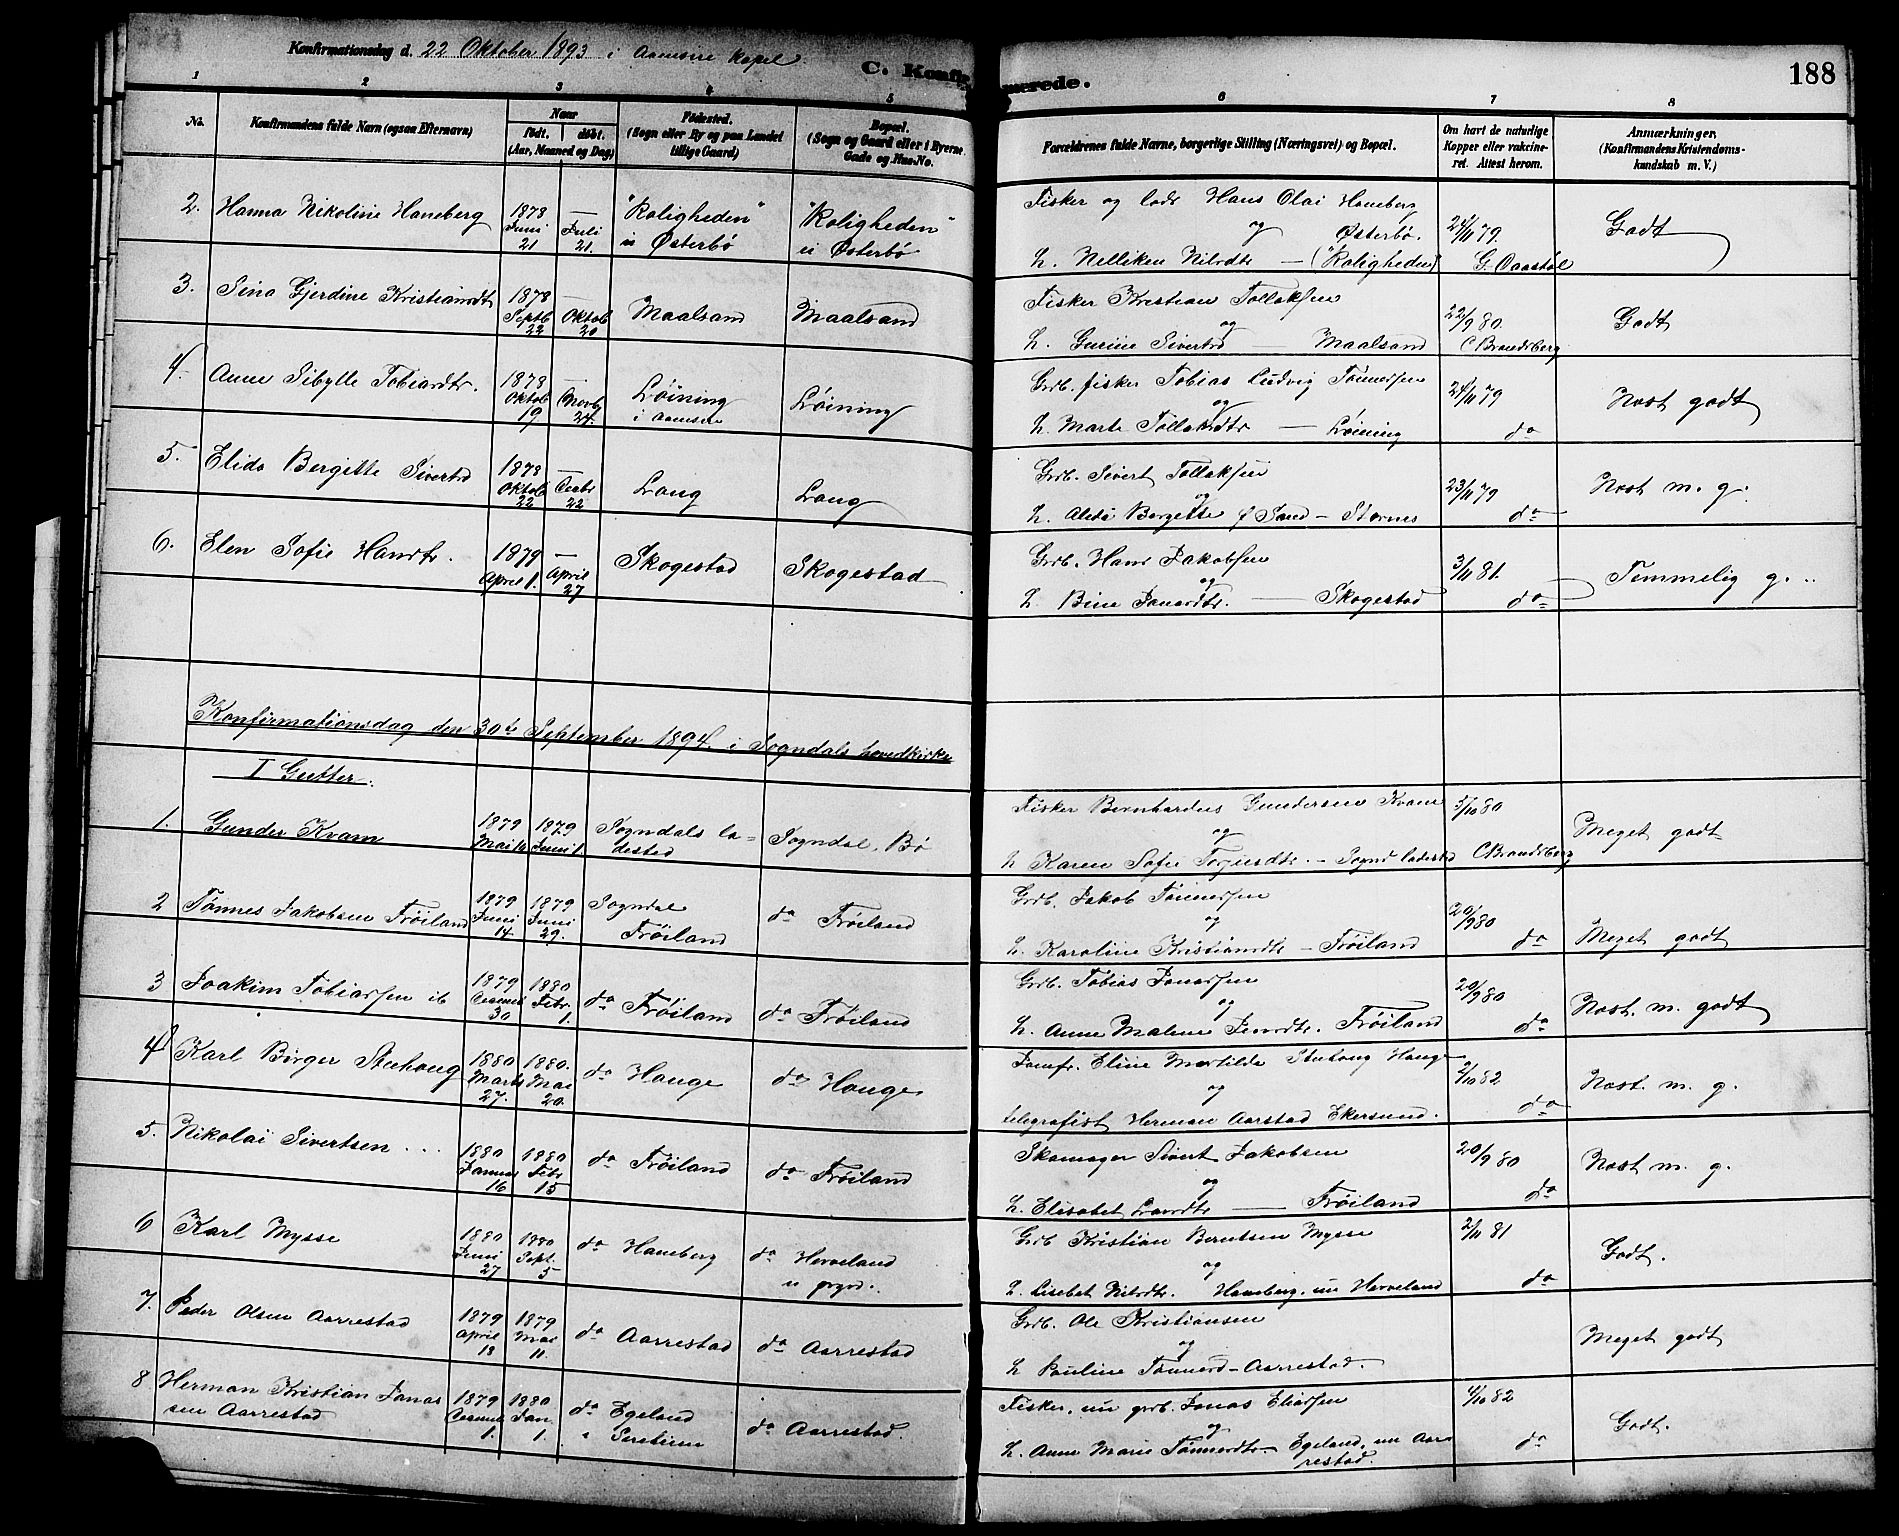 Konfirmationsdag d. 22 Oktober 1893 i Aamsire kapel
C. Konfirmerede.
188
1 2 3 4 5 6 7 8
No.
Konfirmandens fulde Navn (ogsaa Efternavn)
Naar
født. døbt.
(Aar, Maaned og Dag)
Fødested.
(Sogn eller By og paa Landet
tillige Gaard)
Bopæl.
(Sogn og Gaard eller i Byerne
Gade og Hus-No.
Forældrenes fulde Navne, borgerlige Stilling (Næringsvei) og Bopæl.
Om havt de naturlige
Kopper eller vakcine-
ret. Attest herom.
Anmærkninger.
(Konfirmandens Kristendoms-
kundskab m. V.)
2. Hanna Nikoline Haneberg
1878 Juni 21
— Juli 21.
"Roligheden"
u Østerbø
"Roligheden"
u Østerbø
Fisker og lods Hans Olai Haneberg
og Østerbø.
h. Nelliken Nilsdtr — (Roligheden)
24/11 79.
G. Vaastøl
Godt
3. Sina Gjerdine Kristiansdt
1878 Septb 22
— Oktob 20
Maalsand
Maalsand
Fisker Kristian Tollaksen
og
h. Gurine Sivertsd — Maalsand
22/9 80.
C Brandsberg
Godt
4. Anne Sibylle Tobiasdtr.
1878 Oktob 19
— Novb 24.
Løining
i Aamsire
Løining
Grdb. fisker Tobias Ludvig Tønnesen
og
h. Marte Tollaksdtr — Løining
24/11 79
do
Næst godt
5. Elida Bergitte Sivertsd
1878 Oktob 22
— Decbr 22
Lang
Lang
Grdb. Sivert Tollaksen
og
h. Aleta Bergitte f Sand - Stornes
23/11 79
do
Næst m. g.
6. Elen Sofie Hansdtr.
1879 April 1.
— April 27
Skogestad
Skogestad
Grdb. Hans Jakobsen
og
h. Bine Jonasdtr. — Skogestad
3/11 81.
do
Temmelig g.
Konfirmationsdag den 30te September 1894. i Sogndals hovedkirke
I Gutter.
1. Gunder Kvam
1879 Mai 16
1879 Juni 1
Sogndals la-
dested
Sogndal, Bø
Fisker Bernhardus Gundersen Kvam
og
h Karen Sofie Torjusdtr. - Sognd ladested
5/10 80
C Brandsberg
Meget godt
2 Tønnes Jakobsen Frøiland
1879 Juni 14.
1879 Juni 29.
Sogndal
Frøiland
do Frøiland
Grdb. Jakob Tønnesen
og
h. Karoline Kristiansdtr - Frøiland
20/9 80
do
Meget godt
3 Joakim Tobiassen ib
1879 Decemb 30
1880 Febr. 1.
do Frøiland
do Frøiland
Grdb. Tobias Jonassen
og
h. Anne Malene Jensdtr. Frøiland
20/9 80
do
Næst. m. godt
4 Karl Birger Stuhaug
1880 Marts 27.
1880. Mai 20.
do Hauge
do Hauge
Jomfr. Eline Martilde Stuhaug Hauge
og
telegrafist Herman Aarstad Ekersund.
2/10 82
do
Næst. m. g.
5. Nikolai Sivertsen . . .
1880 Januar 16
1880 Febr 15
do Frøiland
do Frøiland
Skomager Sivert Jakobsen
og
h. Elisabet Larsdtr — Frøiland
20/9 80
do
Næst m. g.
6 Karl Mysse
1880 Juni 27
1880 Sept. 5
do Haneberg
do Herveland
u prgrd.
Grdb Kristian Berntsen Mysse
og
h. Lisebet Nilsdtr. Haneberg. nu Herveland
2/11 81
do
Godt.
7. Peder Olsen Aarrestad
1879 April 13
1879 Mai 11.
do Aarrestad
do Aarrestad
Grdb. Ole Kristiansen
og
h Pauline Tønnesd - Aarrestad.
Meget godt
8 Herman Kristian Jonas
sen Aarrestad
1879 Decemb 1.
1880 Jan 1.
do Egeland
" Siretime
do Aarrestad.
Fisker, nu grdb. Jonas Eliassen
og
h. Anne Marie Tønnesdtr - Egeland, nu Aar
restad.
4/10 82
do
Godt.